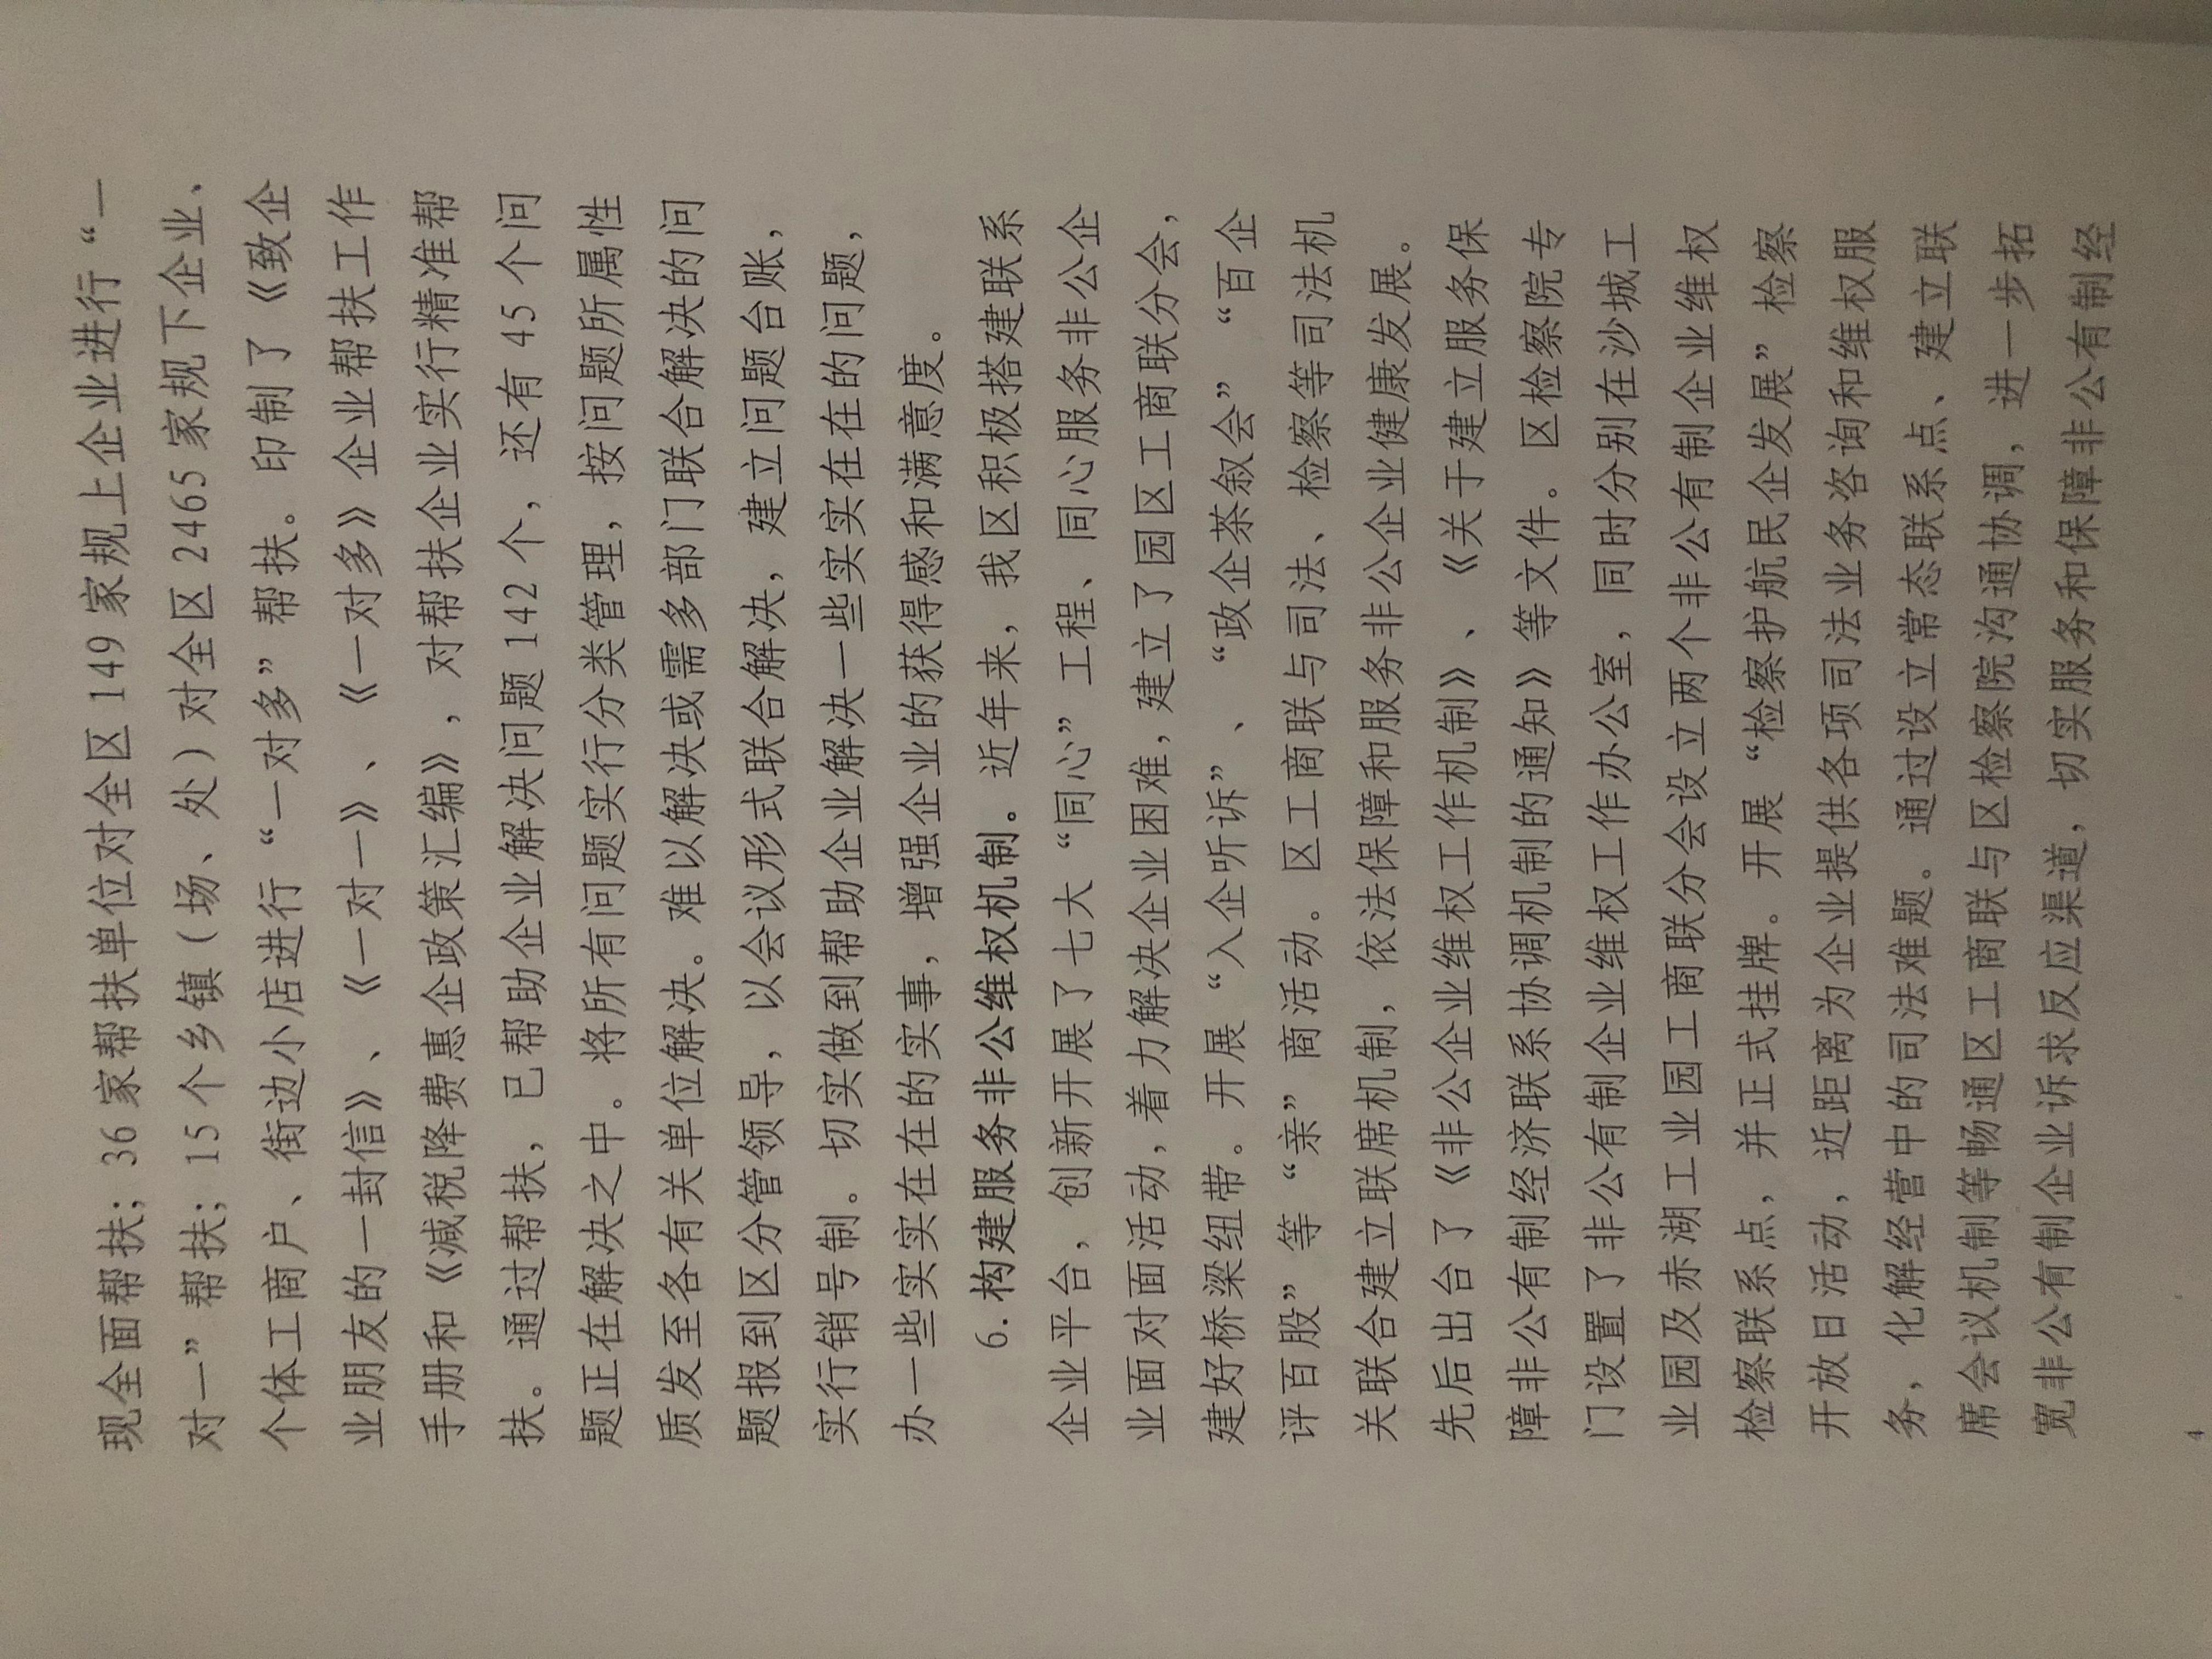 现全面帮扶；36 家帮扶单位对全区 149 家规上企业进行“一
对一”帮扶；15 个乡镇（场、处）对全区 2465 家规下企业、
个体工商户、街边小店进行“一对多”帮扶。印制了《致企
业朋友的一封信》、《一对一》、《一对多》企业帮扶工作
手册和《减税降费惠企政策汇编》，对帮扶企业实行精准帮
扶。通过帮扶，已帮助企业解决问题 142 个，还有 45 个问
题正在解决之中。将所有问题实行分类管理，按问题所属性
质发至各有关单位解决。难以解决或需多部门联合解决的问
题报到区分管领导，以会议形式联合解决，建立问题台账，
实行销号制。切实做到帮助企业解决一些实实在在的问题，
办一些实实在在的实事，增强企业的获得感和满意度。
6.构建服务非公维权机制。近年来，我区积极搭建联系
企业平台，创新开展了七大“同心”工程、同心服务非公企
业面对面活动，着力解决企业困难，建立了园区工商联分会，
建好桥梁纽带。开展“入企听诉”、“政企茶叙会”“百企
评百股”等“亲”商活动。区工商联与司法、检察等司法机
关联合建立联席机制，依法保障和服务非公企业健康发展。
先后出台了《非公企业维权工作机制》、《关于建立服务保
障非公有制经济联系协调机制的通知》等文件。区检察院专
门设置了非公有制企业维权工作办公室，同时分别在沙城工
业园及赤湖工业园工商联分会设立两个非公有制企业维权
检察联系点，并正式挂牌。开展“检察护航民企发展”检察
开放日活动，近距离为企业提供各项司法业务咨询和维权服
务，化解经营中的司法难题。通过设立常态联系点、建立联
席会议机制等畅通区工商联与区检察院沟通协调，进一步拓
宽非公有制企业诉求反应渠道，切实服务和保障非公有制经
4